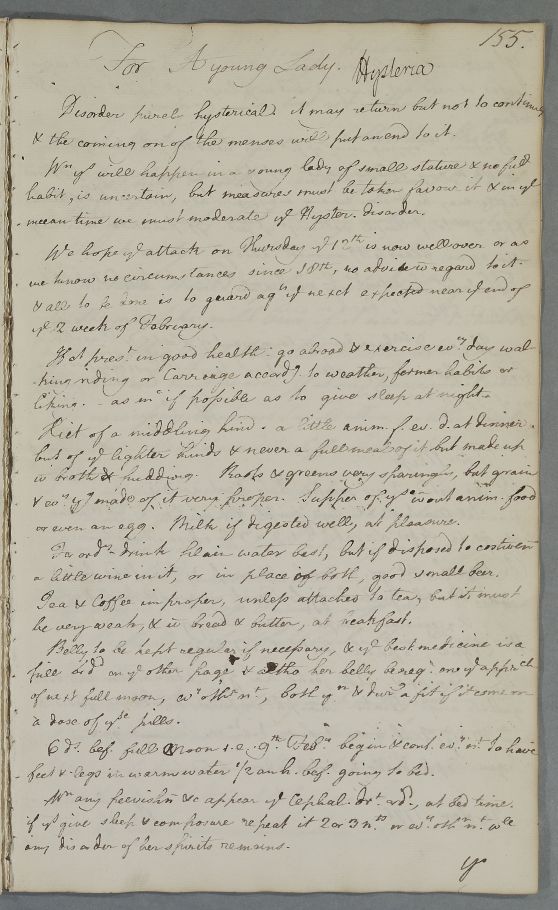 155.
For A young Lady. Hysteria
Disorder purel hysterical. it may return but not to continue
& the coming on of the menses will put an end to it.
Wn ys will happen in a young lady of small stature & no full
habit, is uncertain, but measures must be taken favour it & in ye
mean time we must moderate ye Hyster. disorder.
We hope ye attack on Thursday ye 12th is now well over or as
we know no circumstances since 18th, no advice wt regard to it.
& all to be done is to guard agst ye next expected near ye end of
ye 2 week of February.
If at prest. in good health. go abroad & exercise evy day wal-
king riding or Carreage accordg. to weather, former habits or
liking. as mh if possible as to give sleep at night.
Diet of a middling kind. a little anim. f. ev. d. at dinner
but of ye lighter kinds & never a full meal of it but made up
wt broth & pudding. Roots & greens very sparingly, but grain
& evy yg made of it very proper. Supper of ys wtout anim. food
or even an egg. Milk if digested well, at pleasure.
For ordy drink plain water best, but if disposed to costiven
a little wine in it, or in place of both, good small beer.
Tea & Coffee improper, unless attached to tea, but it must
be very weak, & wt bread & butter, at breakfast.
Belly to be kept regular if necessary, & ye best medicine is a
pill on ye other page & altho her belly be reg. on ye approach
of next full moon, evy othr nt, both & a fit if it come on
a dose of yse pills.
6 ds. bef. full Moon i.e. 9th Feby begin & cont. evy nt. to have
feet & legs in warm water 1/2 an h. bef. going to bed.
Wn any peevishn &c appear ye Cephal. drt. at bed time.
if ys give sleep & composure repeat it 2 or 3 nts or evy othr nt. wle
any disorder of her spirits remains.